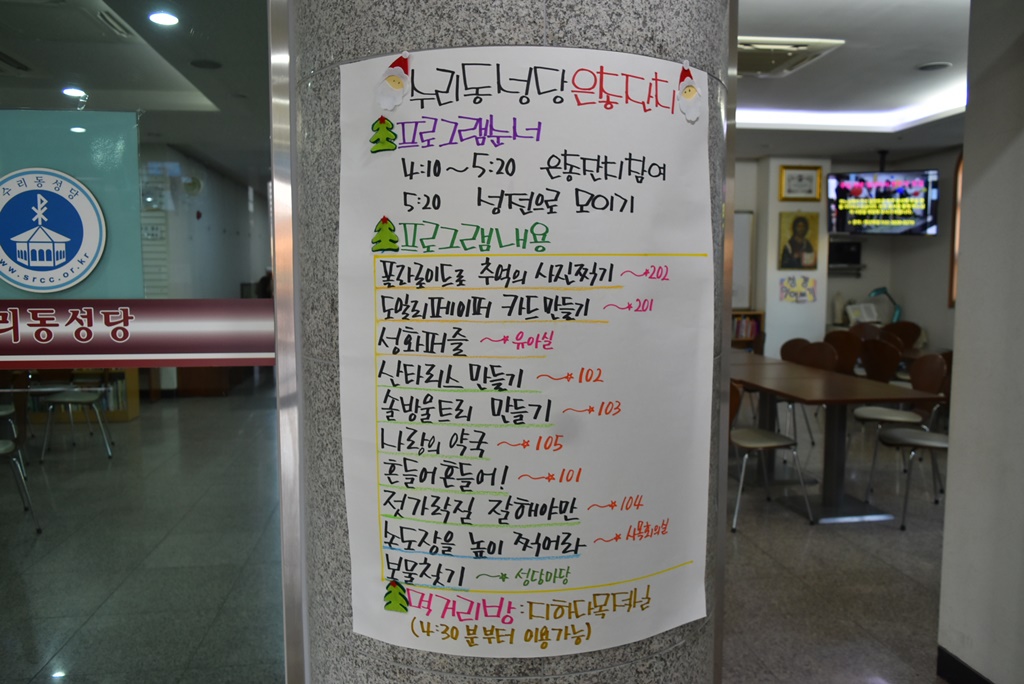 수리동성당 은총단지
프로그램순서
4:10~5:20 은총단지참여
5:20 성전으로 모이기
프로그램내용
폴라로이드로 추억의 사진찍기 → 202
도일리페이퍼 카드만들기 → 201
성화퍼즐 → 유아실
산타리스 만들기 → 102
솔방울트리 만들기 → 103
사랑의 약국 → 105
흔들어흔들어! → 101
젓가락질 잘해야만 → 104
눈도장을 높이 찍어라 → 사목회의실
보물찾기 → 성당마당
먹거리방: 지하다목적실
(4:30분부터 이용가능)
수리동성당
www.srcc.or.kr
리동성당